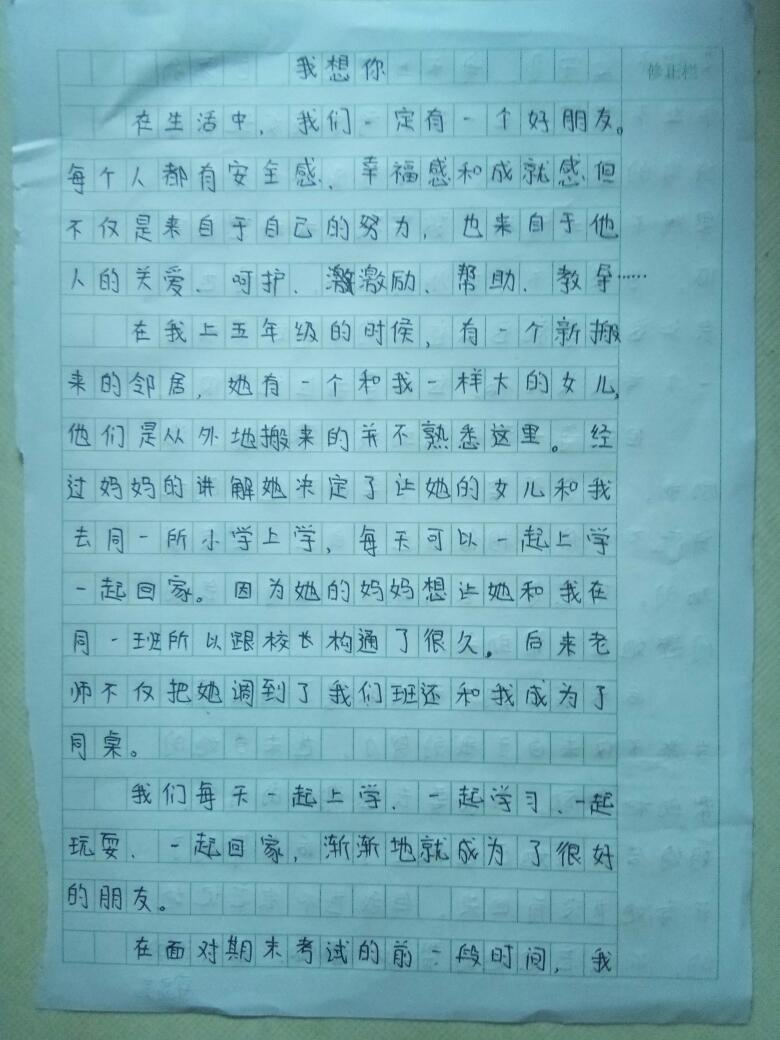 我想你
修正栏
在生活中，我们一定有一个好朋友。
每个人都有安全感、幸福感和成就感但
不仅是来自于自己的努力，也来自于他
人的关爱、呵护、激激励、帮助、教导……
在我上五年级的时候，有一个新搬
来的邻居，她有一个和我一样大的女儿，
他们是从外地搬来的并不熟悉这里。经
过妈妈的讲解她决定了让她的女儿和我
去同一所小学上学，每天可以一起上学
一起回家。因为她的妈妈想让她和我在
同一班所以跟校长构通了很久。后来老
师不仅把她调到了我们班还和我成为了
同桌。
我们每天一起上学、一起学习、一起
玩耍、一起回家，渐渐地就成为了很好
的朋友。
在面对期末考试的前一段时间，我